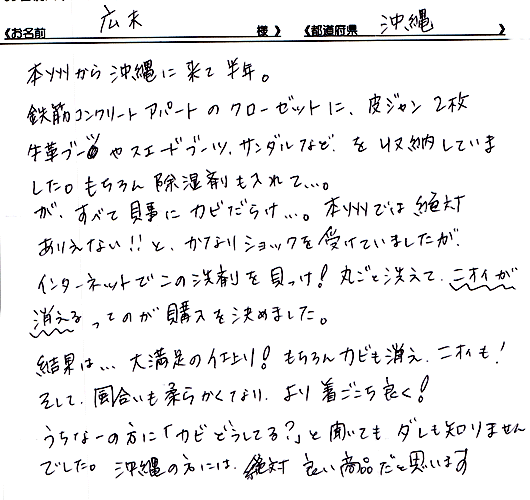 《お名前 広末 様》 《都道府県 沖縄 》
本州から沖縄に来て半年。
鉄筋コンクリートアパートのクローゼットに、皮ジャン2枚
牛革ブーツやスエードブーツ、サンダルなど、を収納していま
した。もちろん除湿剤も入れて…。
が、すべて見事にカビだらけ…。本州では絶対
ありえない!!と、かなりショックを受けていましたが、
インターネットでこの洗剤を見っけ!丸ごと洗えて、ニオイが
消えるってのが購入を決めました。
結果は…大満足の仕上り!もちろんカビも消え、ニオイも!
そして、風合いも柔らかくなり、より着ごこち良く!
うちなーの方に「カビどうしてる?」と聞いてもダレも知りません
でした。沖縄の方には、絶対良い商品だと思います